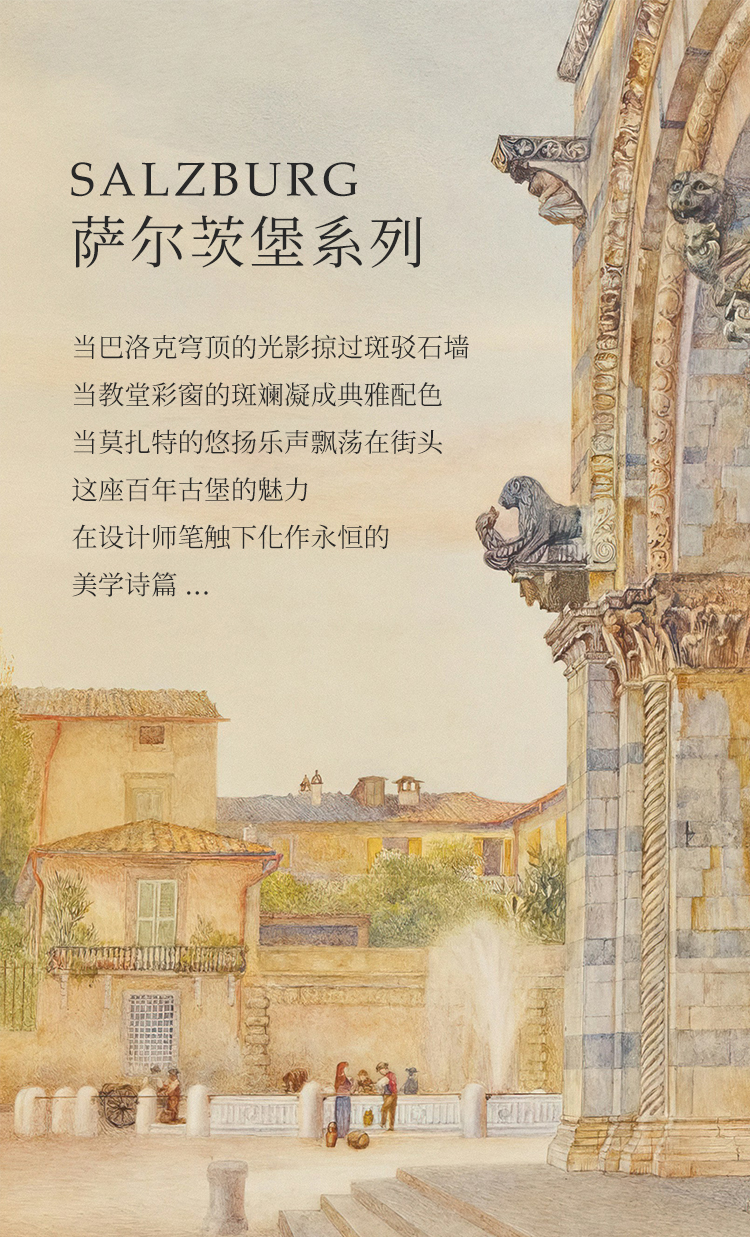 SALZBURG
萨尔茨堡系列
当巴洛克穹顶的光影掠过斑驳石墙
当教堂彩窗的斑斓凝成典雅配色
当莫扎特的悠扬乐声飘荡在街头
这座百年古堡的魅力
在设计师笔触下化作永恒的
美学诗篇 ...